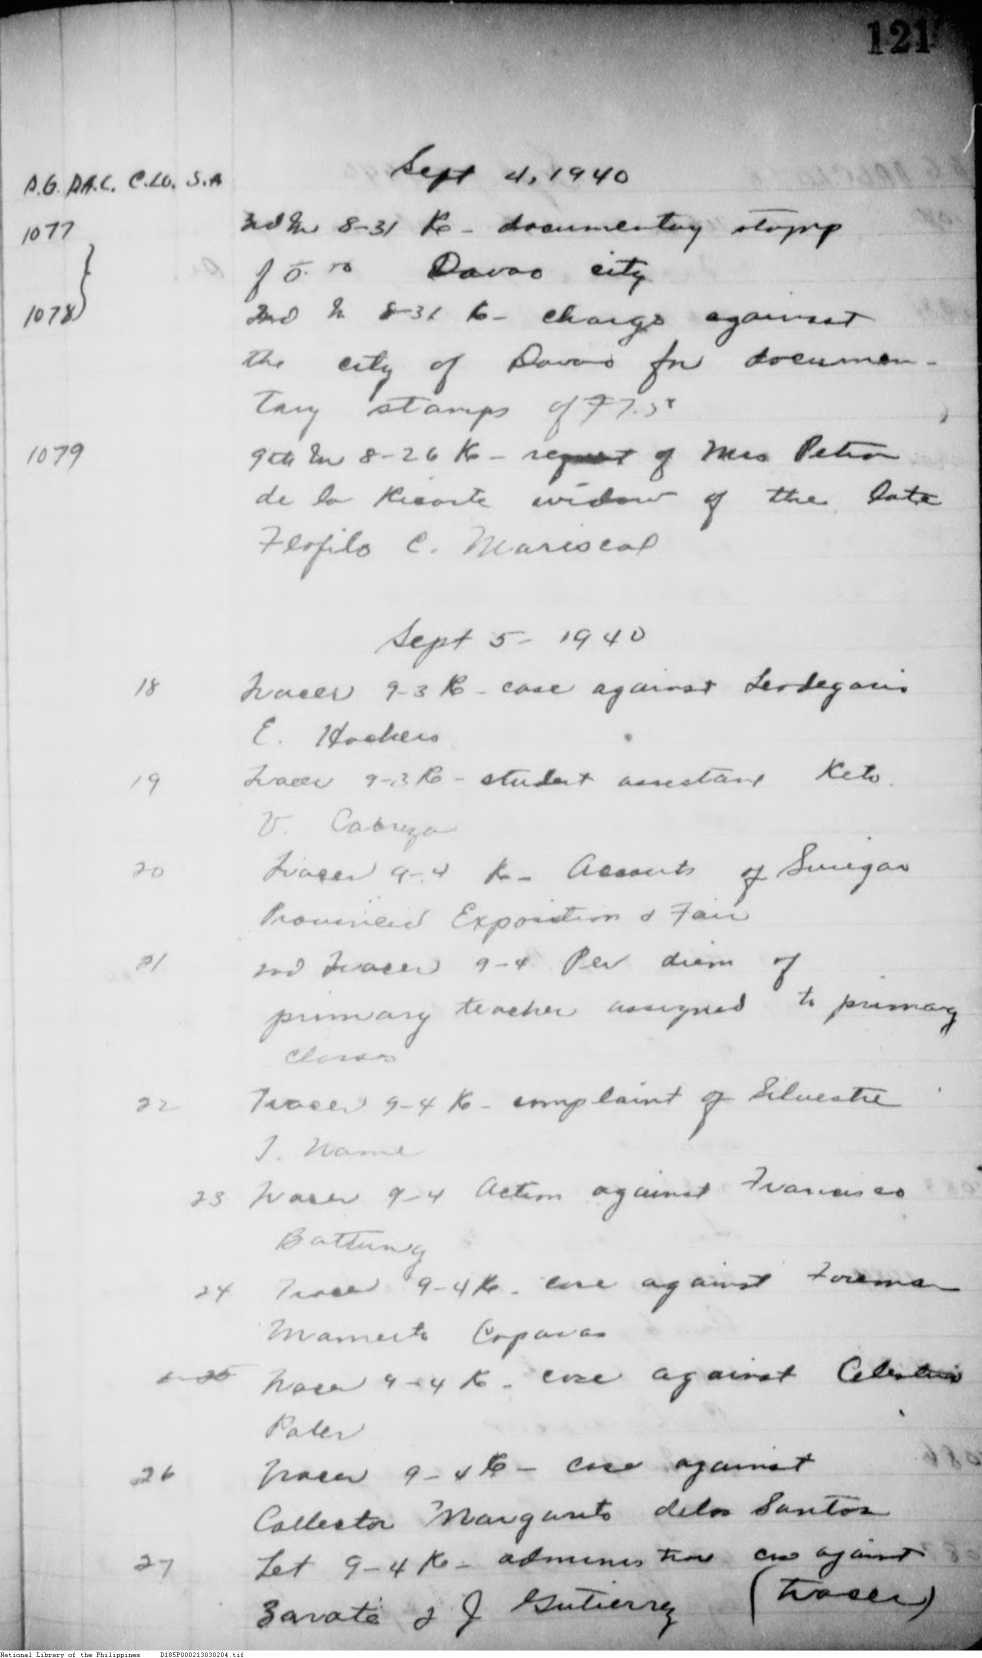 121
Sept 4, 1940
A.G. D.A.C. C.LO. S.A
1077 2nd In 8-31 K- documentary stamp
of Davao city
1078 2nd In 8-31 K- charge against
the city of Davao for documen-
tary stamps of ₱7.50
1079 9th In 8-26 K- request of Mrs Petra
de la widow of the late
Teofilo C. Mariscal
Sept 5- 1940
18 Tracer 9-3 K- case against Leodegario
E.
19 Tracer 9-3 K- student assistant
V. Cabreza
20 Tracer 9-4 K- Accounts of Surigao
Provincial Exposition & Fair
21 2nd Tracer 9-4 Per diem of
primary teacher assigned to primary
classes
22 Tracer 9-4 K- complaint of Silvestre
23 Tracer 9-4 Action against Francisco
Battung
24 Tracer 9-4 K- case against Foreman
Mamerto
25 Tracer 9-4 K- case against
26 Tracer 9-4 K- case against
Collector Margarito delos Santos
27 Let 9-4 K- case against
Zarate & J Gutierrez (tracer)
National Library of the Philippines D185P000213030204.tif